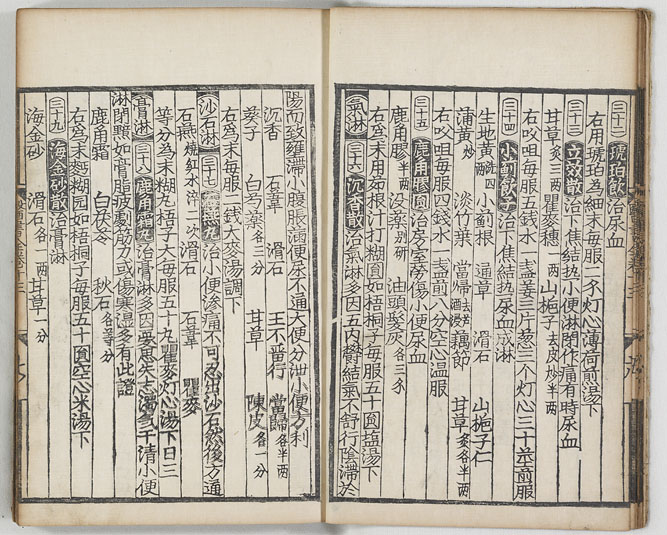 三十二 琥珀飲 治尿血
右用琥珀為細末每服二钱灯心薄荷煎湯下
三十三 立效散 治下焦結热小便淋閉作痛有時尿血
甘草炙三两 瞿麥穗一两 山梔子去皮炒半两
右㕮咀每服五錢水一盞姜三片葱三个灯心三十茎煎服
三十四 小薊飲子 治下焦結热尿血成淋
生地黄洗四两 小薊根 通草 滑石 山梔子仁
蒲黄炒 淡竹葉 當歸去芦酒浸 藕節 甘草炙各半两
右㕮咀每服四錢水一盞煎八分空心温服
三十五 鹿角膠圓 治房室劳傷小便尿血
鹿角膠半两 没薬别研 油頭髮灰各三钱
右為末用茹根汁打糊圓如梧桐子每服五十圓塩湯下
氣淋 三十六 沉香散 治氣淋多因五内鬱結氣不舒行陰滯於
陽而致壅滯小腹脹滿便尿不通大便分泄小便方利
沉香 石韋 滑石 王不留行 當歸各半两
葵子 白芍薬各三分 甘草 陳皮各一分
右為末每服二錢大麥湯調下
沙石淋 三十七 治小便渗痛不可忍出沙石然後方通
石燕燒紅水淬二次 滑石 石韋 瞿麥
等分為末糊丸梧子大每服五十丸瞿麥灯心湯下日三
膏淋 三十八 鹿角霜丸 治膏淋多因 小便
淋閉黯如膏脂疲劇筋力或傷寒濕多有此證
鹿角霜 白茯苓 秋石各等分
右為末麪糊圓如梧桐子每服五十圓空心米湯下
三十九 海金砂散 治膏淋
海金砂 滑石各一两 甘草一分